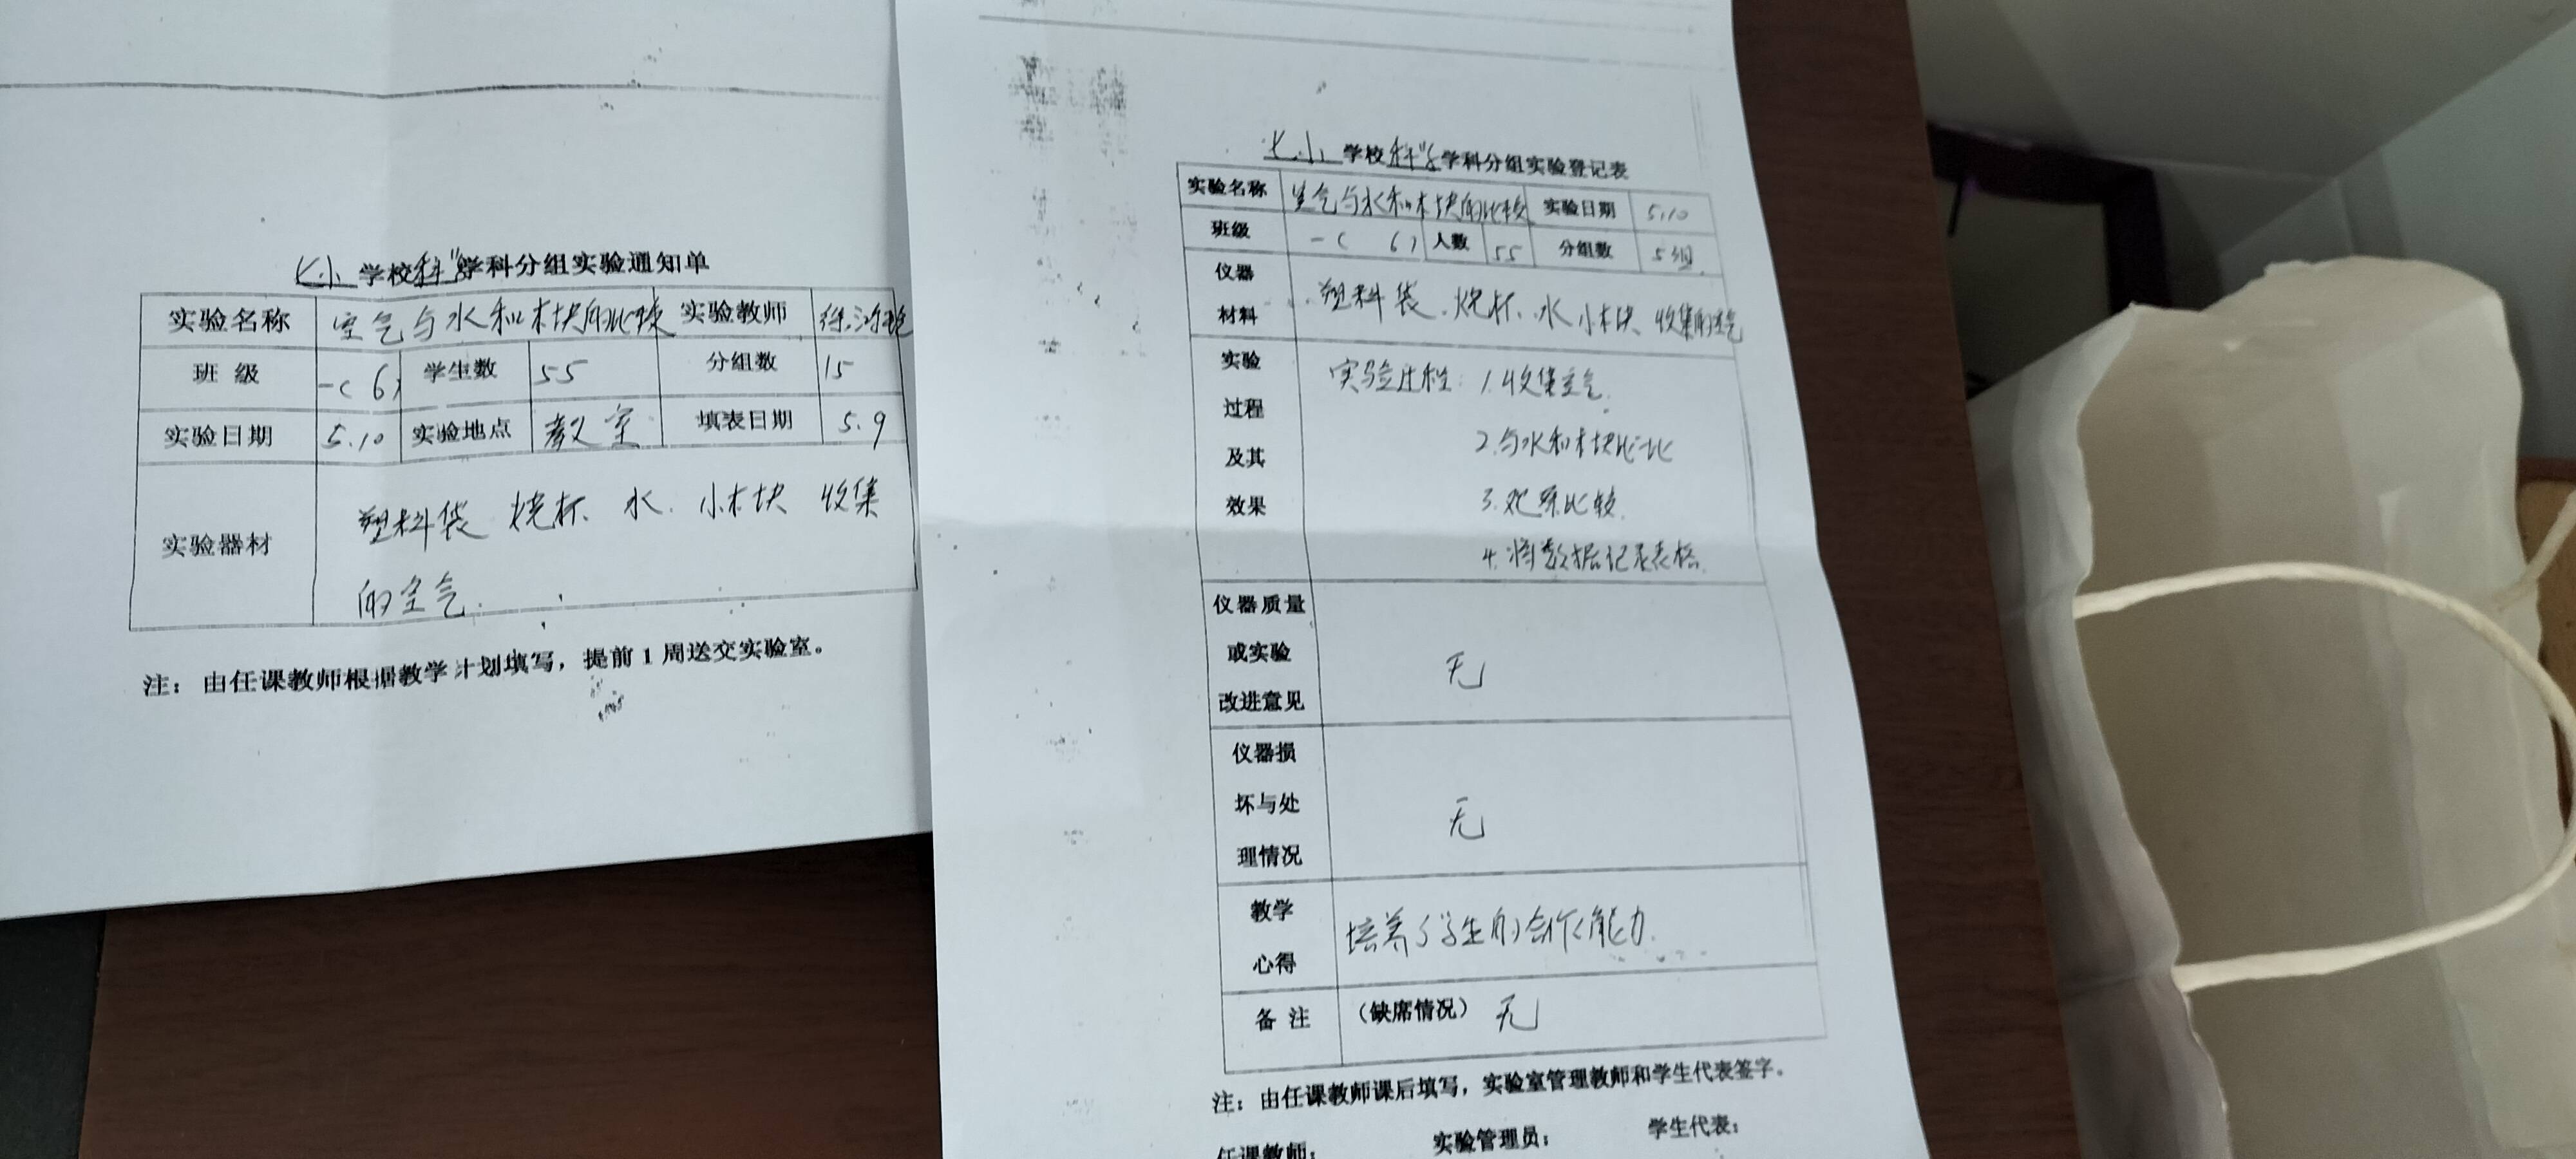 七小学校科学学科分组实验通知单
实验名称 空气与水和木块的比较 实验教师
班级 一(6) 学生数 55 分组数 15
实验日期 5.10 实验地点 教室 填表日期 5.9
实验器材 塑料袋 烧杯、水、小木块 收集
的空气.
注：由任课教师根据教学计划填写，提前1周送交实验室。
七小学校科学学科分组实验登记表
实验名称 空气与水和木块的比较 实验日期 5.10
班级 一(6) 人数 55 分组数 5组
仪器
材料
塑料袋、烧杯、水 小木块 收集的空气
实验
过程
及其
效果
实验过程：1.收集空气.
2.与水和木块比一比
3.观察比较.
4.将数据记录表格.
仪器质量
或实验
改进意见
无
仪器损
坏与处
理情况
无
教学
心得
培养了学生的合作能力.
备注 （缺席情况） 无
注：由任课教师课后填写，实验室管理教师和学生代表签字。
任课教师： 实验管理员： 学生代表：